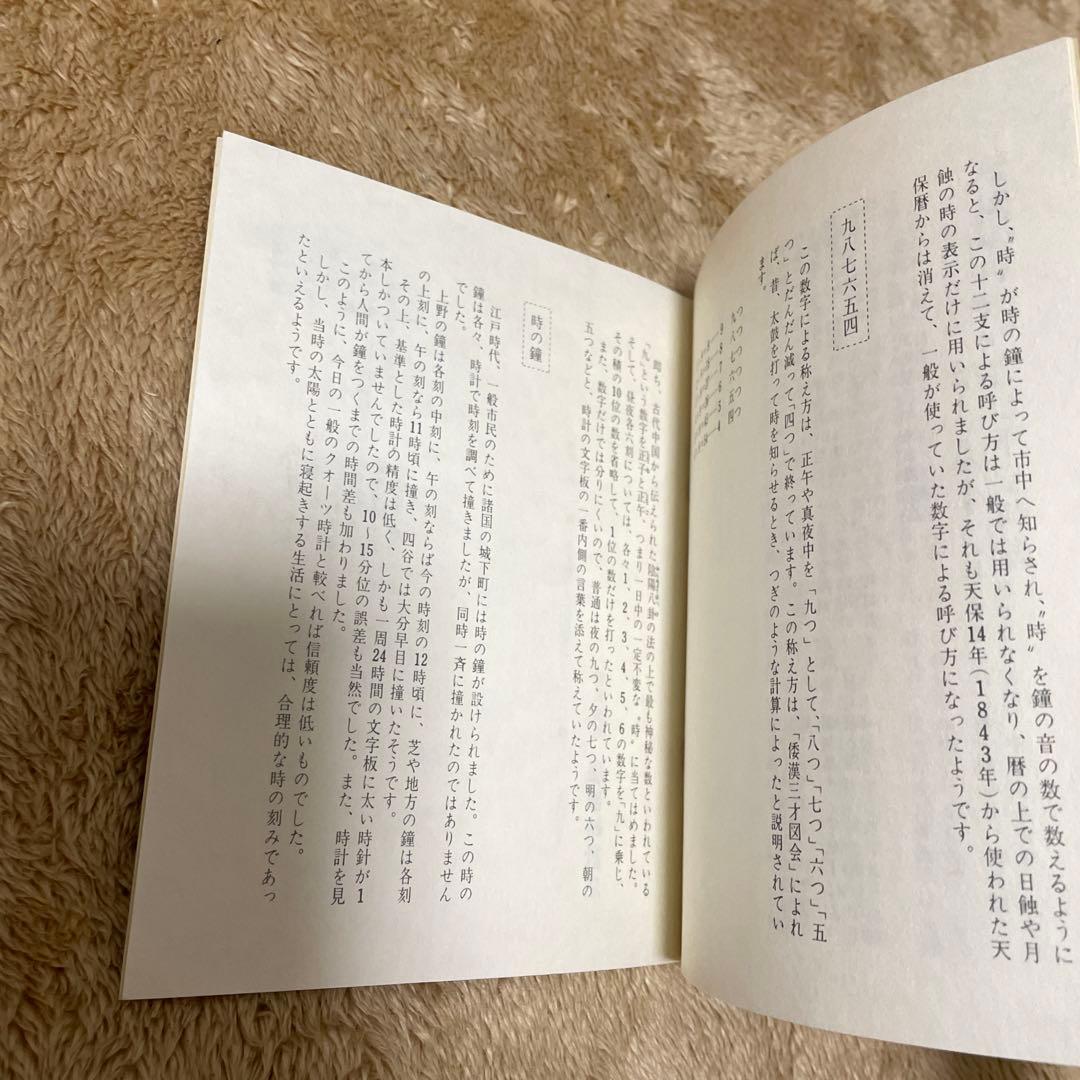 しかし、〝時〟が時の鐘によって市中へ知らされ、〝時〟を鐘の音の数で数えるように
なると、この十二支による呼び方は一般では用いられなくなり、暦の上での日蝕や月
蝕の時の表示だけに用いられましたが、それも天保14年(1843年)から使われた天
保暦からは消えて、一般が使っていた数字による呼び方になったようです。
九八七六五四
この数字による称え方は、正午や真夜中を「九つ」として、「八つ」「七つ」「六つ」「五
つ」とだんだん減って「四つ」で終っています。この称え方は、「倭漢三才図会」によれ
ば、昔、太鼓を打って時を知らせるとき、つぎのような計算によったと説明されてい
ます。
九つ
八つ
七つ
六つ
五つ
四つ
即ち、古代中国から伝えられた陰陽八卦の法の上で最も神秘な数といわれている
「九」という数字を正子と正午、つまり一日中の一定不変な〝時〟に当てはめました。
そして、昼夜各六刻については、各々1、2、3、4、5、6の数字を「九」に乗じ、
その積の10位の数を省略して、1位の数だけを打ったといわれています。
また、数字だけでは分りにくいので、普通は夜の九つ、夕の七つ、明の六つ、朝の
五つなどと、時計の文字板の一番内側の言葉を添えて称えていたようです。
時の鐘
江戸時代、一般市民のために諸国の城下町には時の鐘が設けられました。この時の
鐘は各々、時計で時刻を調べて撞きましたが、同時一斉に撞かれたのではありません
でした。
上野の鐘は各刻の中刻に、午の刻ならば今の時刻の12時頃に、芝や地方の鐘は各刻
の上刻に、午の刻なら11時頃に撞き、四谷では大分早目に撞いたそうです。
その上、基準とした時計の精度は低く、しかも一周24時間の文字板に太い時針が1
本しかついていませんでしたので、10～15分位の誤差も当然でした。また、時計を見
てから人間が鐘をつくまでの時間差も加わりました。
このように、今日の一般のクオーツ時計と較べれば信頼度は低いものでした。
しかし、当時の太陽とともに寝起きする生活にとっては、合理的な時の刻みであっ
たといえるようです。